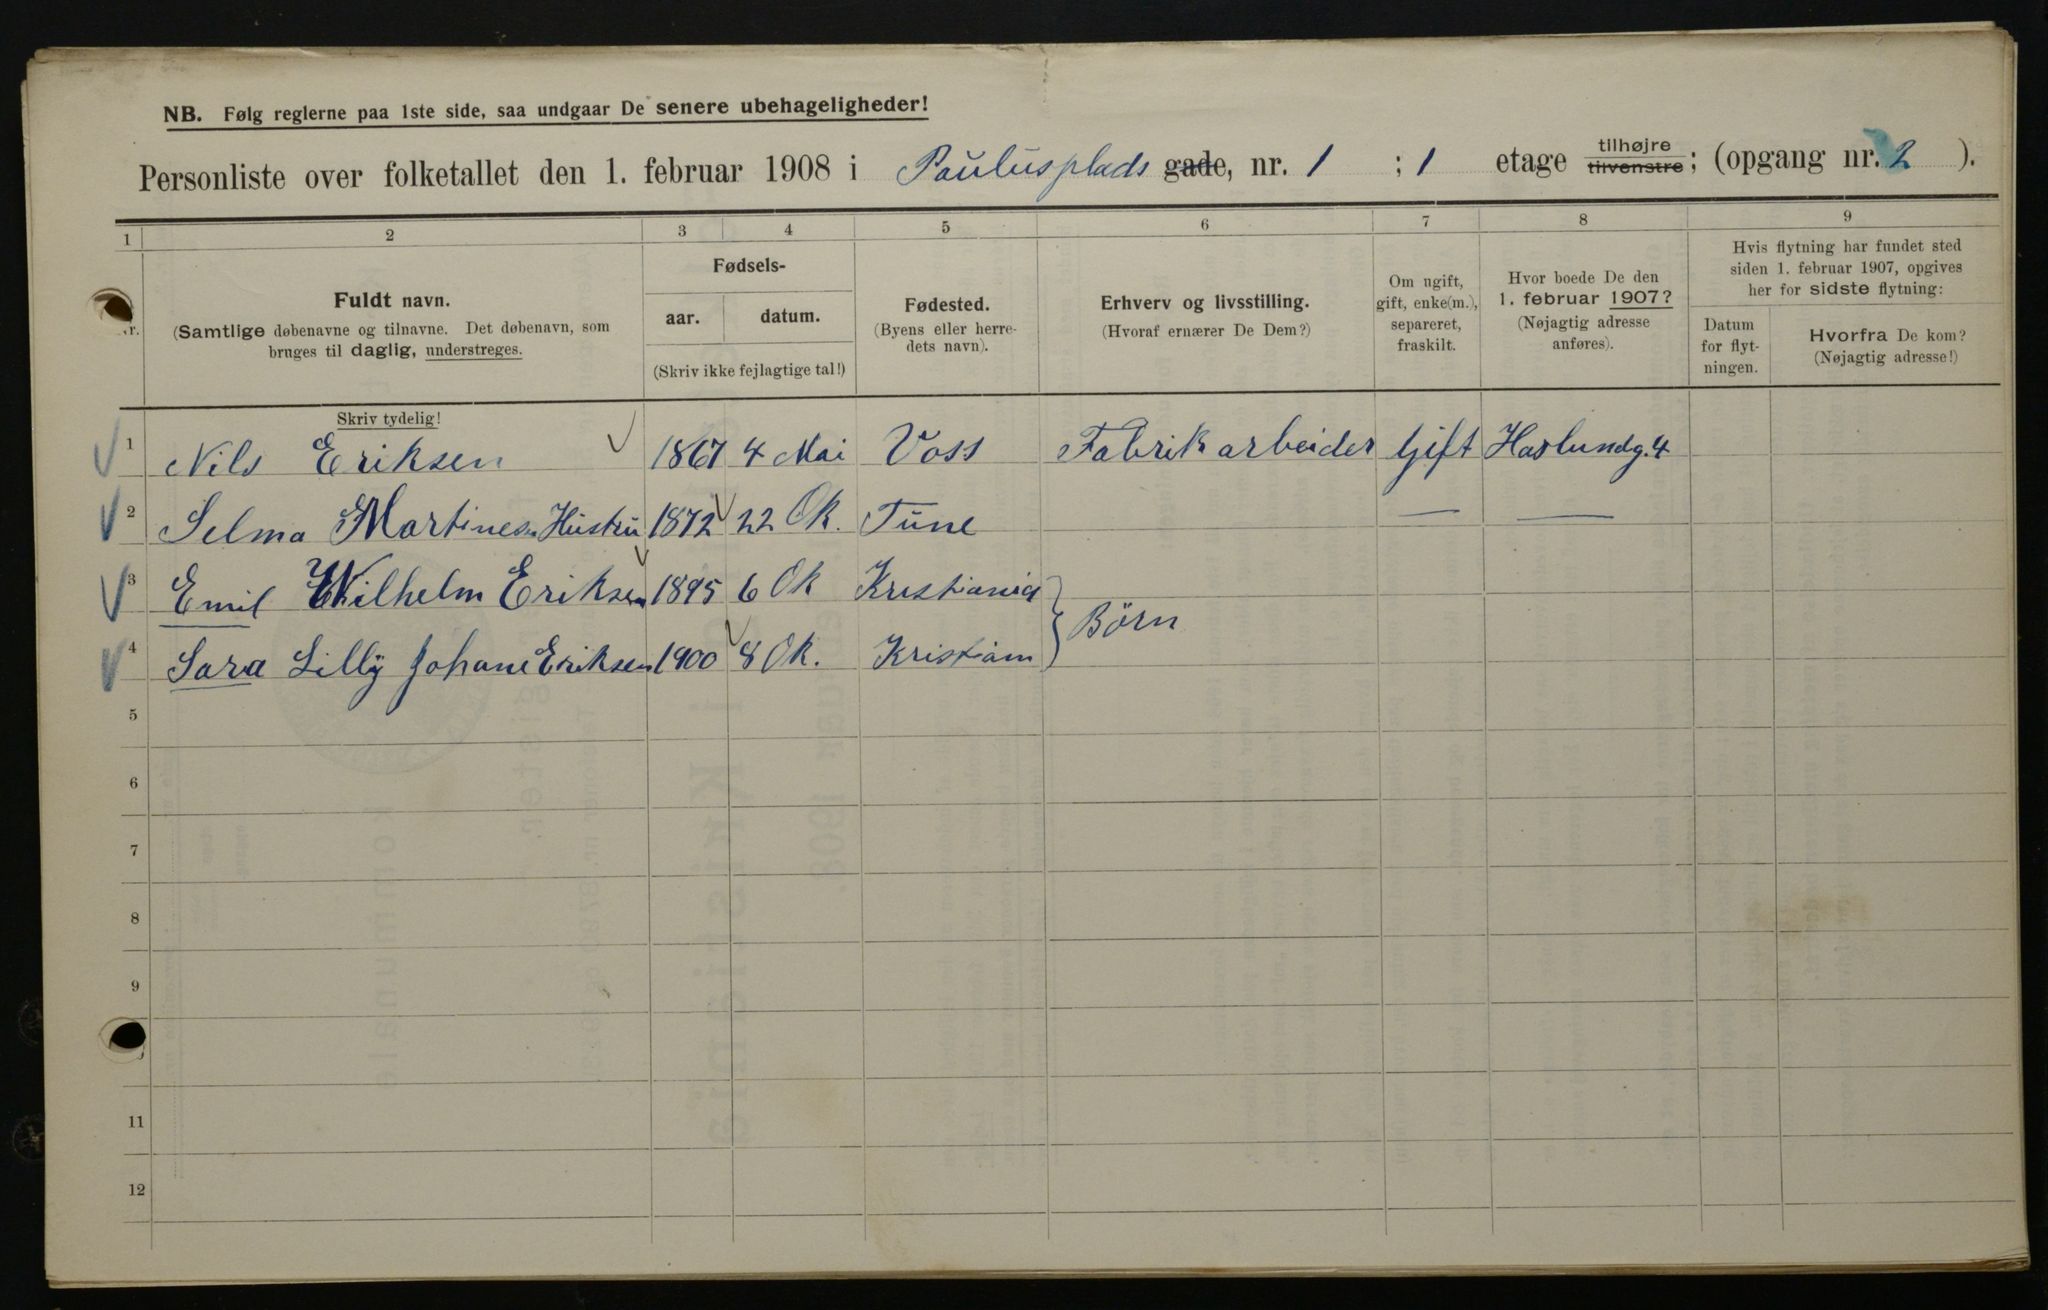 NB. Følg reglerne paa 1ste side, saa undgaar De senere ubehageligheder!
Personliste over folketallet den 1. februar 1908 i Paulusplads gade, nr. 1 ; 1 etage tilhøjre tilvenstre; (opgang nr. 2 ).
1 2 3 4 5 6 7 8 9
Nr.
Fuldt navn.
(Samtlige døbenavne og tilnavne. Det døbenavn, som
bruges til daglig, understreges.
Fødsels-
aar. datum.
(Skriv ikke fejlagtige tal!)
Fødested.
(Byens eller herre-
dets navn).
Erhverv og livsstilling.
(Hvoraf ernærer De Dem?)
Om ugift,
gift, enke(m.),
separeret,
fraskilt.
Hvor boede De den
1. februar 1907?
(Nøjagtig adresse
anføres).
Hvis flytning har fundet sted
siden 1. februar 1907, opgives
her for sidste flytning:
Datum
for flyt-
ningen.
Hvorfra De kom?
(Nøjagtig adresse!)
Skriv tydelig!
1 Nils Eriksen 1867 4 Mai Voss Fabrikarbeider Gift Haslundg. 4
2 Selma Martinesn Hustru 1872 22 Ok. Tune — —
3 Emil Wilhelm Eriksen 1895 6 Ok Kristiania
Börn
4 Sara Lilly Johane Eriksen 1900 8 Ok. Kristiam
5
6
7
8
9
11
12